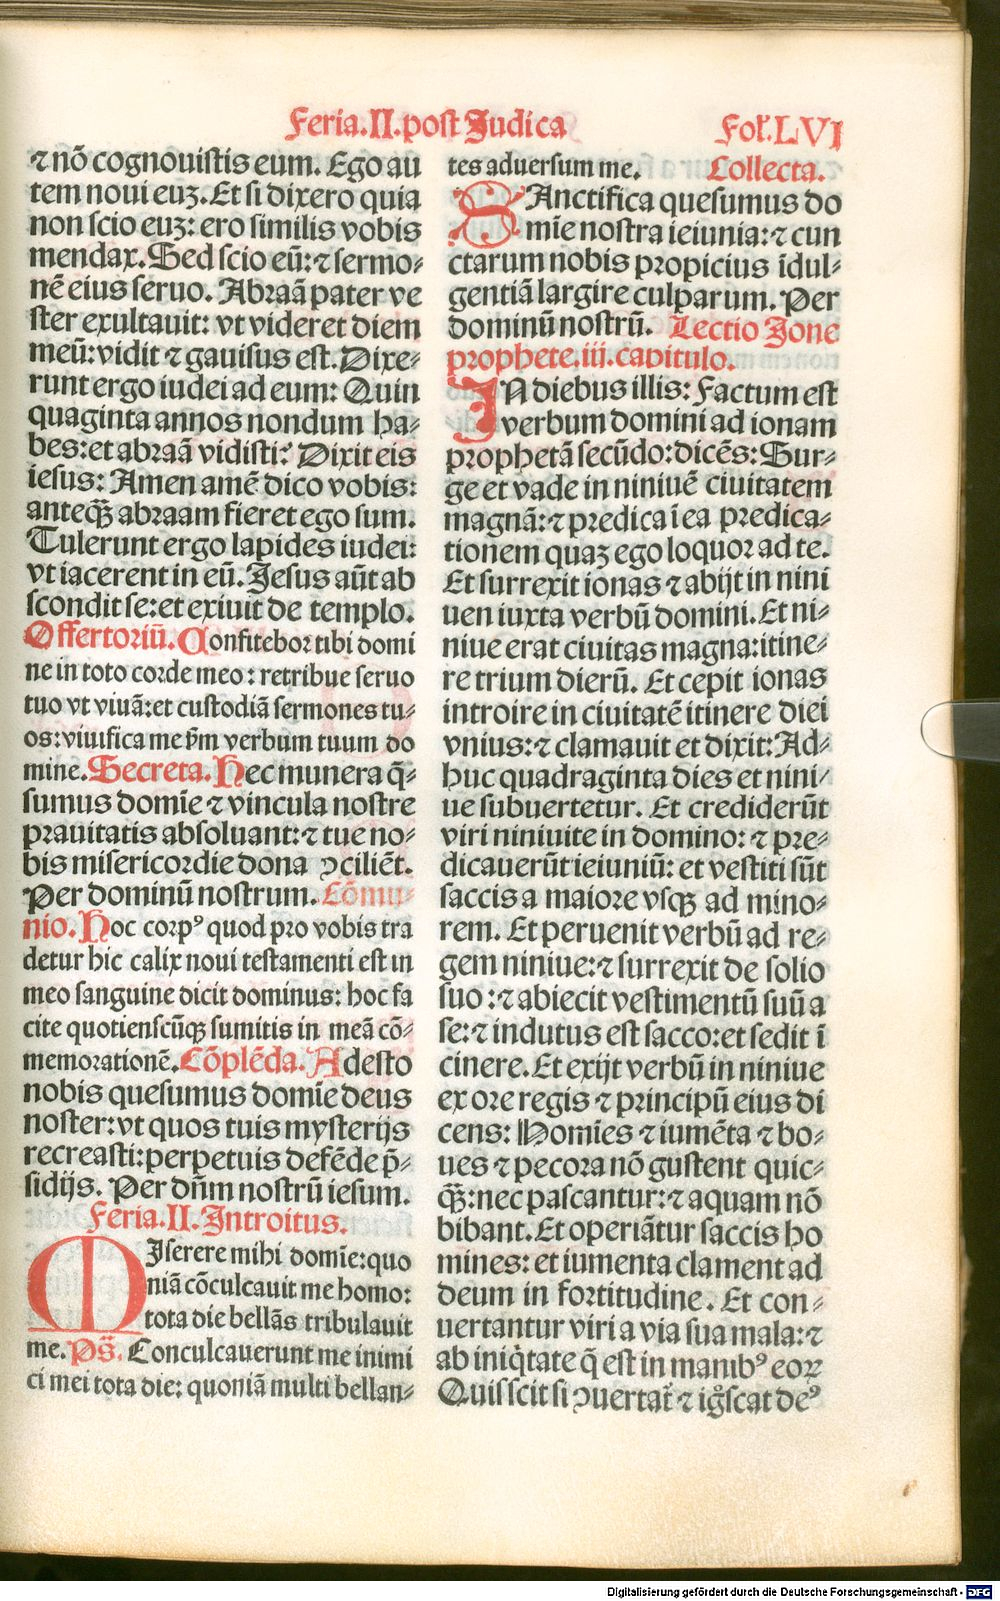 Feria.II.post Judica
Fol.LVI
⁊ nō cognouistis eum. Ego au
tem noui euꝫ. Et si dixero quia
non scio euꝫ: ero similis vobis
mendax. Sed scio eū: ⁊ sermo⸗
nē eius seruo. Abraā pater ve
ster exultauit: vt videret diem
meū: vidit ⁊ gauisus est. Dixe⸗
runt ergo iudei ad eum: Quin
quaginta annos nondum ha⸗
bes: et abraā vidisti? Dixit eis
iesus: Amen amē dico vobis:
anteqꝫ abraam fieret ego sum.
Tulerunt ergo lapides iudei:
vt iacerent in eū. Jesus aūt ab
scondit se: et exiuit de templo.
Offertoriū. Confitebor tibi domi
ne in toto corde meo: retribue seruo
tuo vt viuā: et custodiā sermones tu⸗
os: viuifica me ẜm verbum tuum do
mine. Secreta. Hec munera q̄⸗
sumus domīe ⁊ vincula nostre
prauitatis absoluant: ⁊ tue no⸗
bis misericordie dona ꝯciliēt.
Per dominū nostrum. Cōmu⸗
nio. Hoc corpꝰ quod pro vobis tra
detur hic calix noui testamenti est in
meo sanguine dicit dominus: hoc fa
cite quotienscūqꝫ sumitis in meā cō⸗
memorationē. Cōplēda. Adesto
nobis quesumus domīe deus
noster: vt quos tuis mysterijs
recreasti: perpetuis defēde p̄⸗
sidijs. Per dn̄m nostrū iesum.
Feria.II. Introitus.
MIserere mihi domīe: quo
niā cōculcauit me homo:
tota die bellās tribulauit
me. Ps̄. Conculcauerunt me inimi
ci mei tota die: quoniā multi bellan⸗
tes aduersum me. Collecta.
SAnctifica quesumus do
mīe nostra ieiunia: ⁊ cun
ctarum nobis propicius īdul⸗
gentiā largire culparum. Per
dominū nostrū. Lectio Jone
prophete. iii. capitulo.
IN diebus illis: Factum est
verbum domini ad ionam
prophetā secūdo: dicēs: Sur⸗
ge et vade in niniuē ciuitatem
magnā: ⁊ predica ī ea predica⸗
tionem quaꝫ ego loquor ad te.
Et surrexit ionas ⁊ abijt in nini
uen iuxta verbū domini. Et ni⸗
niue erat ciuitas magna: itine⸗
re trium dierū. Et cepit ionas
introire in ciuitatē itinere diei
vnius: ⁊ clamauit et dixit: Ad⸗
huc quadraginta dies et nini⸗
ue subuertetur. Et crediderūt
viri niniuite in domino: ⁊ pre⸗
dicauerūt ieiuniū: et vestiti sūt
saccis a maiore vsqꝫ ad mino⸗
rem. Et peruenit verbū ad re⸗
gem niniue: ⁊ surrexit de solio
suo: ⁊ abiecit vestimentū suū a
se: ⁊ indutus est sacco: et sedit ī
cinere. Et exijt verbū in niniue
ex ore regis ⁊ principū eius di
cens: Homīes ⁊ iumēta ⁊ bo⸗
ues ⁊ pecora nō gustent quic⸗
qꝫ: nec pascantur: ⁊ aquam nō
bibant. Et operiātur saccis ho
mines: et iumenta clament ad
deum in fortitudine. Et con⸗
uertantur viri a via sua mala: ⁊
ab iniq̇tate q̄ est in manibꝰ eoꝝ
Quis scit si ꝯuertat̄ ⁊ ig̊scat deꝰ
Digitalisierung gefördert durch die Deutsche Forschungsgemeinschaft - DFG